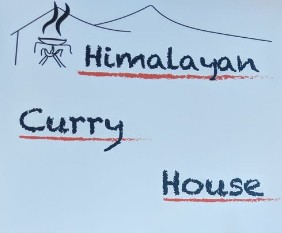 Himalayan
Curry
House